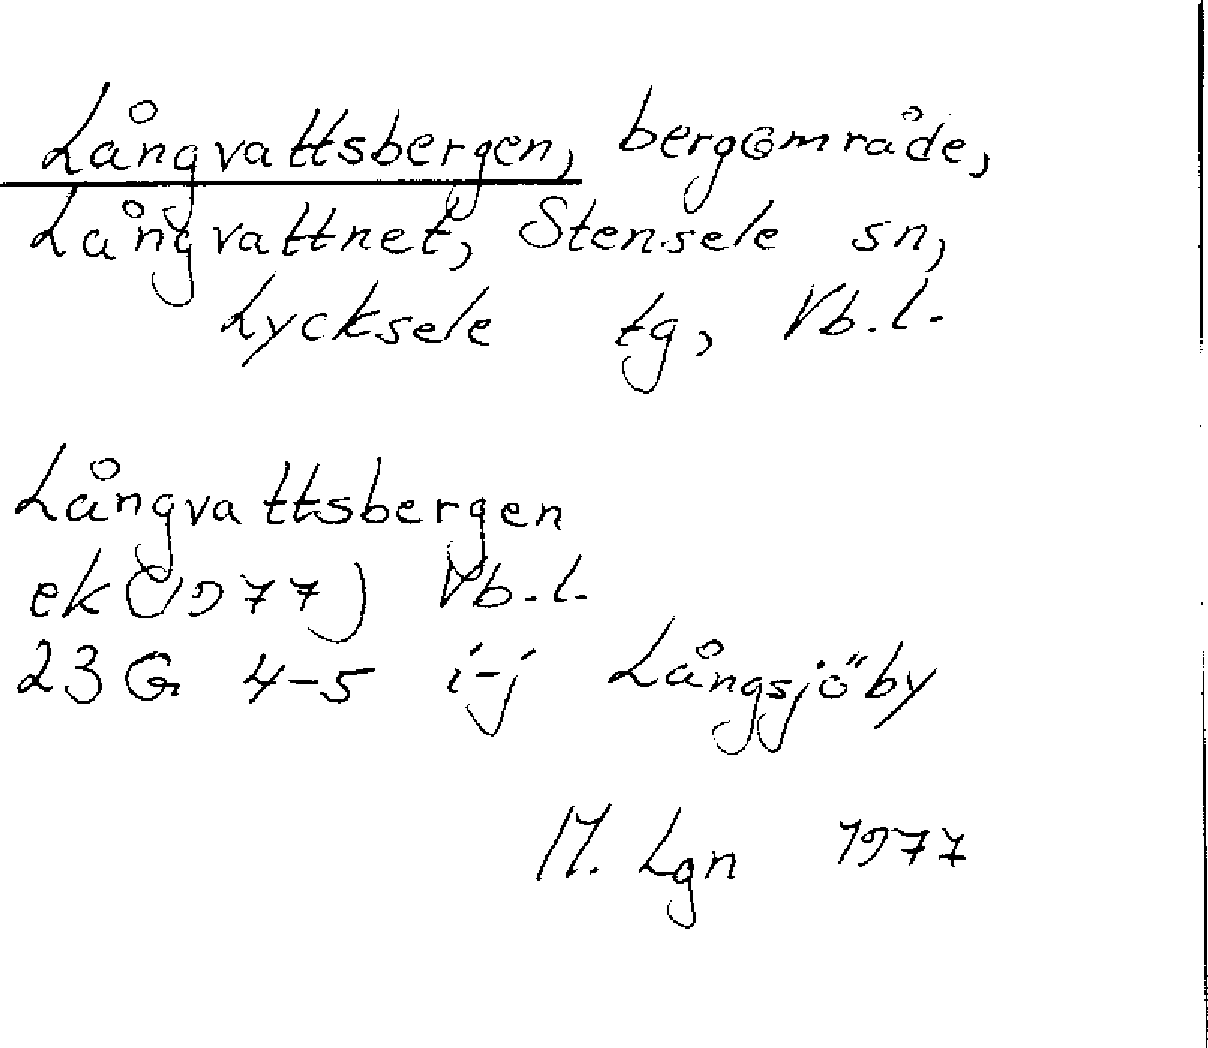 Långvattsbergen, bergområde,
Långvattnet, Stensele sn,
Lycksele tg, Vb.l.
Långvattsbergen
ek (1977) Vb.l.
23 G 4-5 i-j Långsjöby
M. Lgn 1977